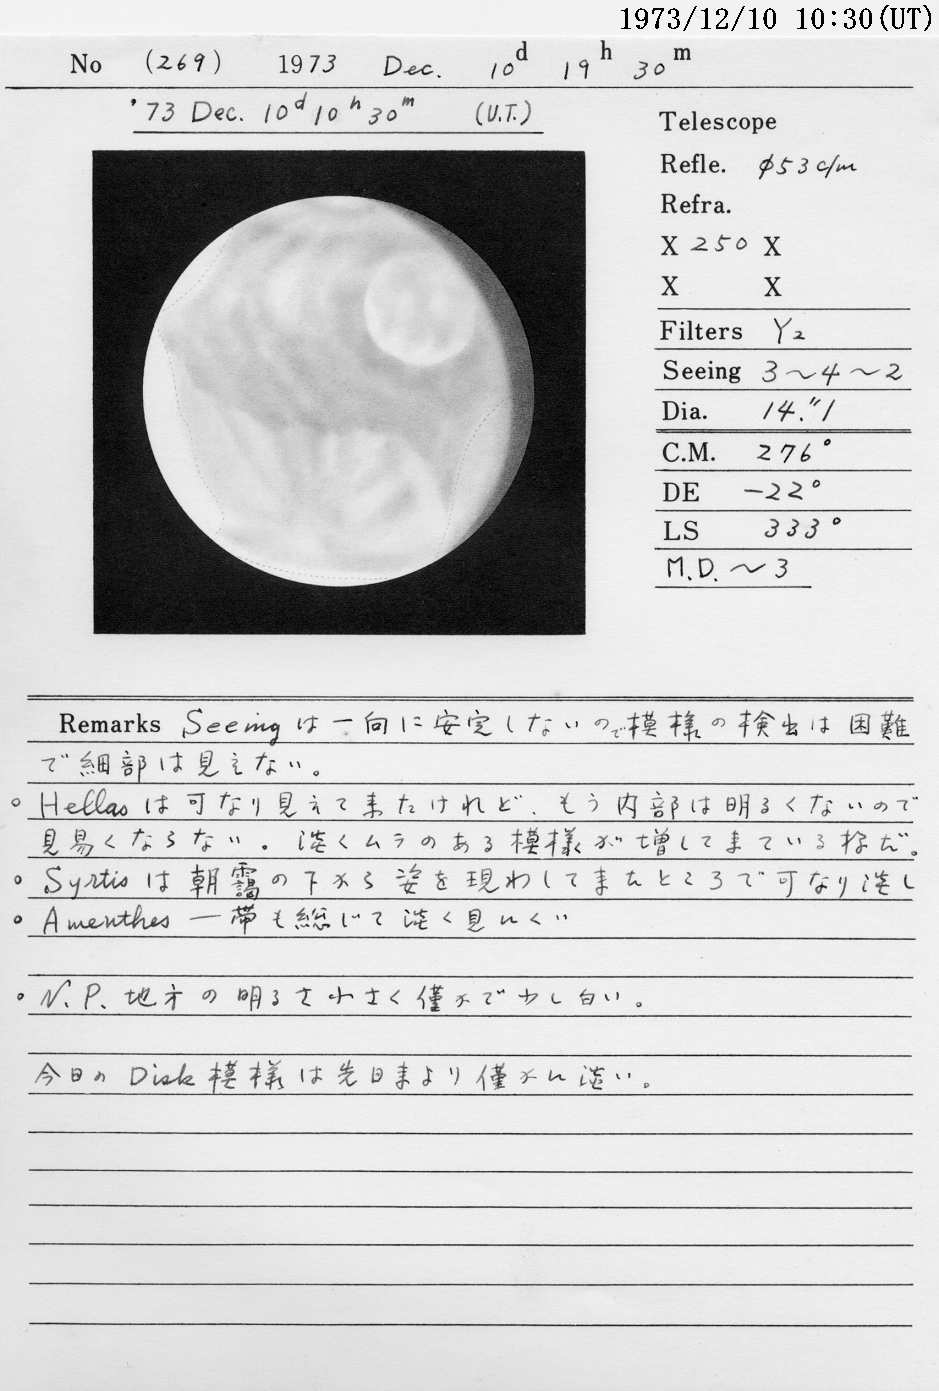 1973/12/10 10:30(UT)
No (269) 1973 Dec. 10d 19h 30m
'73 Dec. 10d 10h 30m (U.T.)
Telescope
Refle. φ53c/m
Refra.
X 250 X
X X
Filters Y2
Seeing 3〜4〜2
Dia. 14."1
C.M. 276°
DE −22°
LS 333°
M.D. 〜3
Remarks Seeingは一向に安定しないので模様の検出は困難
で細部は見えない。
○ Hellasは可なり見えて来たけれど、もう内部は明るくないので
見易くならない。淡くムラのある模様が増して来ている様だ。
○ Syrtisは朝靄の下から姿を現わして来たところで可なり淡し
○ Amenthes一帯も総じて淡く見にくい
○ N.P.地方の明るさ小さく僅かで少し白い。
今日のDisk模様は先日来より僅かに淡い。